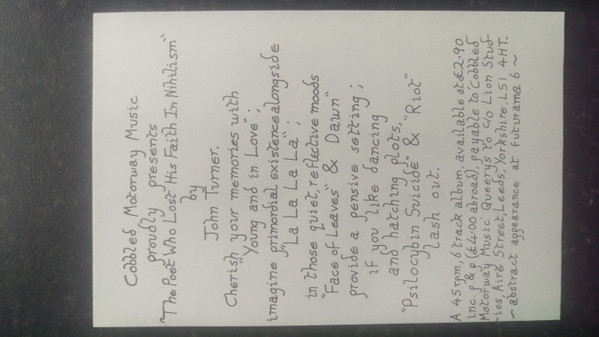 Cobbled Motorway Music
proudly presents
"The Poet Who Lost His Faith In Nihilism"
by
John Turner.
Cherish your memories with
"Young and in Love";
imagine primordial existence alongside
"La La La La";
in those quiet, reflective moods
"Face of Leaves" & "Dawn"
provide a pensive setting;
if you like dancing
and hatching plots,
"Psilocybin Suicide" & "Riot"
lash out.
A 45 rpm, 6 track album, available at £2.90
inc. p & p (£4.00 abroad), payable to Cobbled
Motorway Music Queerys to c/o Lion Stud-
-ios, Aire Street, Leeds, Yorkshire, LS1 4HT.
~ abstract appearance at futurama 6 ~